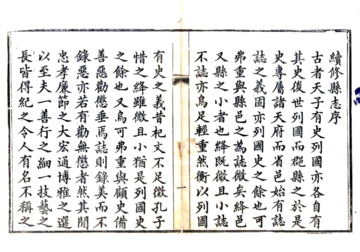 續修縣志序
古者天子有史列國亦各自有
其史後世列國而縣之於是
史專屬諸天府而省邑始有誌
誌之義固亦列國史之餘也可
弗重與縣邑之為誌微矣絳邑
又縣之小者其為誌既微且小誌
不誌亦烏足輕重然衡以列國
有史之義昔杞文不足徵孔子
惜之絳雖微且小猶是列國史
之餘也又烏可弗重與顧史備
善惡勸懲垂焉誌則錄美而不
錄惡亦若有勸無懲者然其間
忠孝廉節之大宏通博雅之選
以至夫一善行之細一技藝之
長皆得紀之令人有名不稱之